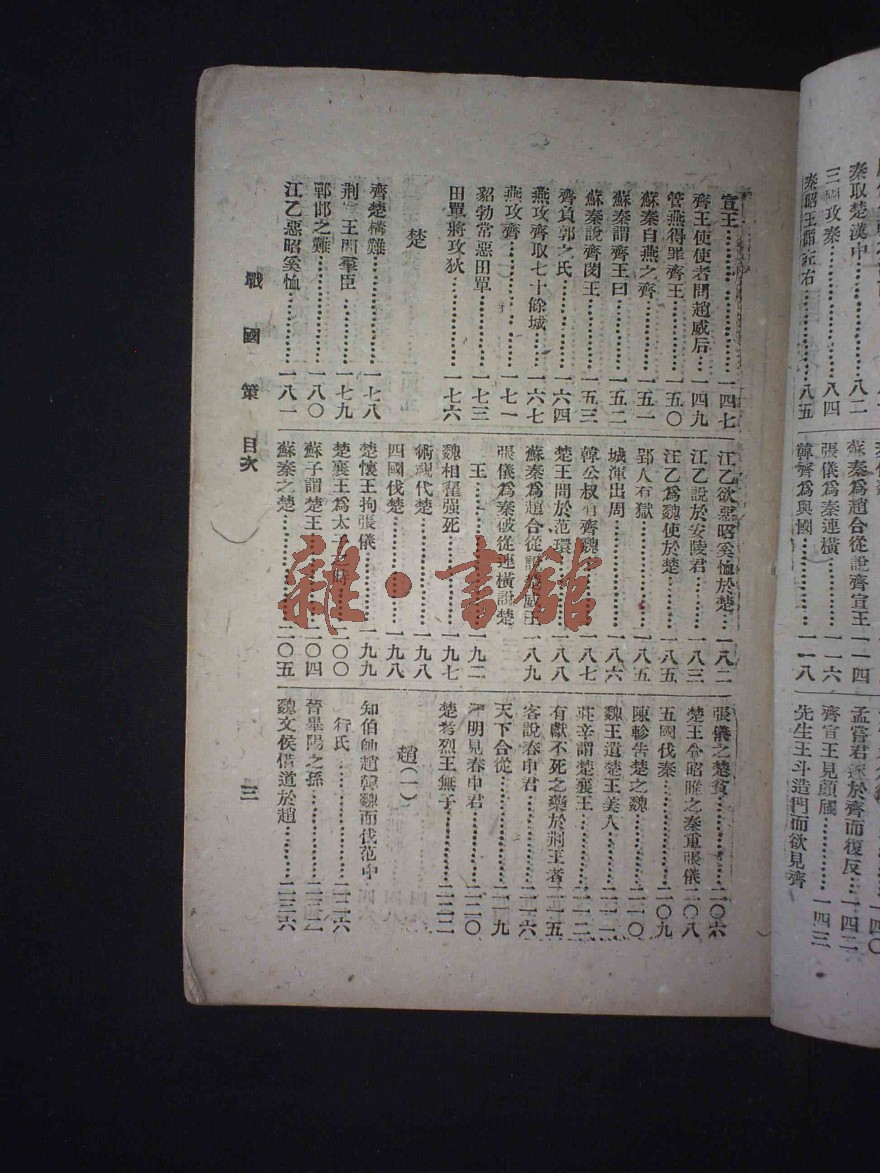 秦取楚漢中………八二
三國攻秦………八四
秦昭王謂左右………八五
蘇秦爲趙合從說齊宣王一一四
張儀爲秦連橫………一一六
韓齊爲與國………一一八
孟嘗君逐於齊而復反…一四二
齊宣王見顏斶………一四三
先生王斗造門而欲見齊
宣王………一四七
齊王使使者問趙威后…一四九
管燕得罪齊王………一五〇
蘇秦自燕之齊………一五一
蘇秦謂齊王曰………一五二
蘇秦說齊閔王………一五三
齊負郭之民………一六四
燕攻齊取七十餘城……一六七
燕攻齊………一七一
貂勃常惡田單………一七三
田單將攻狄………一七六
楚
齊楚構難………一七八
荆宣王問羣臣………一七九
邯鄲之難………一八〇
江乙惡昭奚恤………一八一
江乙欲惡昭奚恤於楚…一八二
江乙說於安陵君………一八三
江乙爲魏使於楚………一八五
郢人有獄………一八五
城渾出周………一八六
韓公叔有齊魏………一八七
楚王問於范環………一八八
蘇秦爲趙合從說楚威王一八九
張儀爲秦破從連橫說楚
王………一九二
魏相翟强死………一九七
術視代楚………一九八
四國伐楚………一九八
楚懷王拘張儀………一九九
楚襄王爲太子之時……二〇〇
蘇子謂楚王………二〇四
蘇秦之楚………二〇五
張儀之楚貧………二〇六
楚王令昭睢之秦重張儀二〇八
五國伐秦………二〇九
陳軫告楚之魏………二一〇
魏王遺楚王美人………二一一
莊辛謂楚襄王………二一二
有獻不死之藥於荆王者二一五
客說春申君………二一六
天下合從………二一九
汗明見春申君………二二〇
楚考烈王無子………二二二
趙(一)
知伯帥趙韓魏而伐范中
行氏………二二六
晉畢陽之孫………二三二
魏文侯借道於趙………二三六
戰國策 目次
三
雜·書館